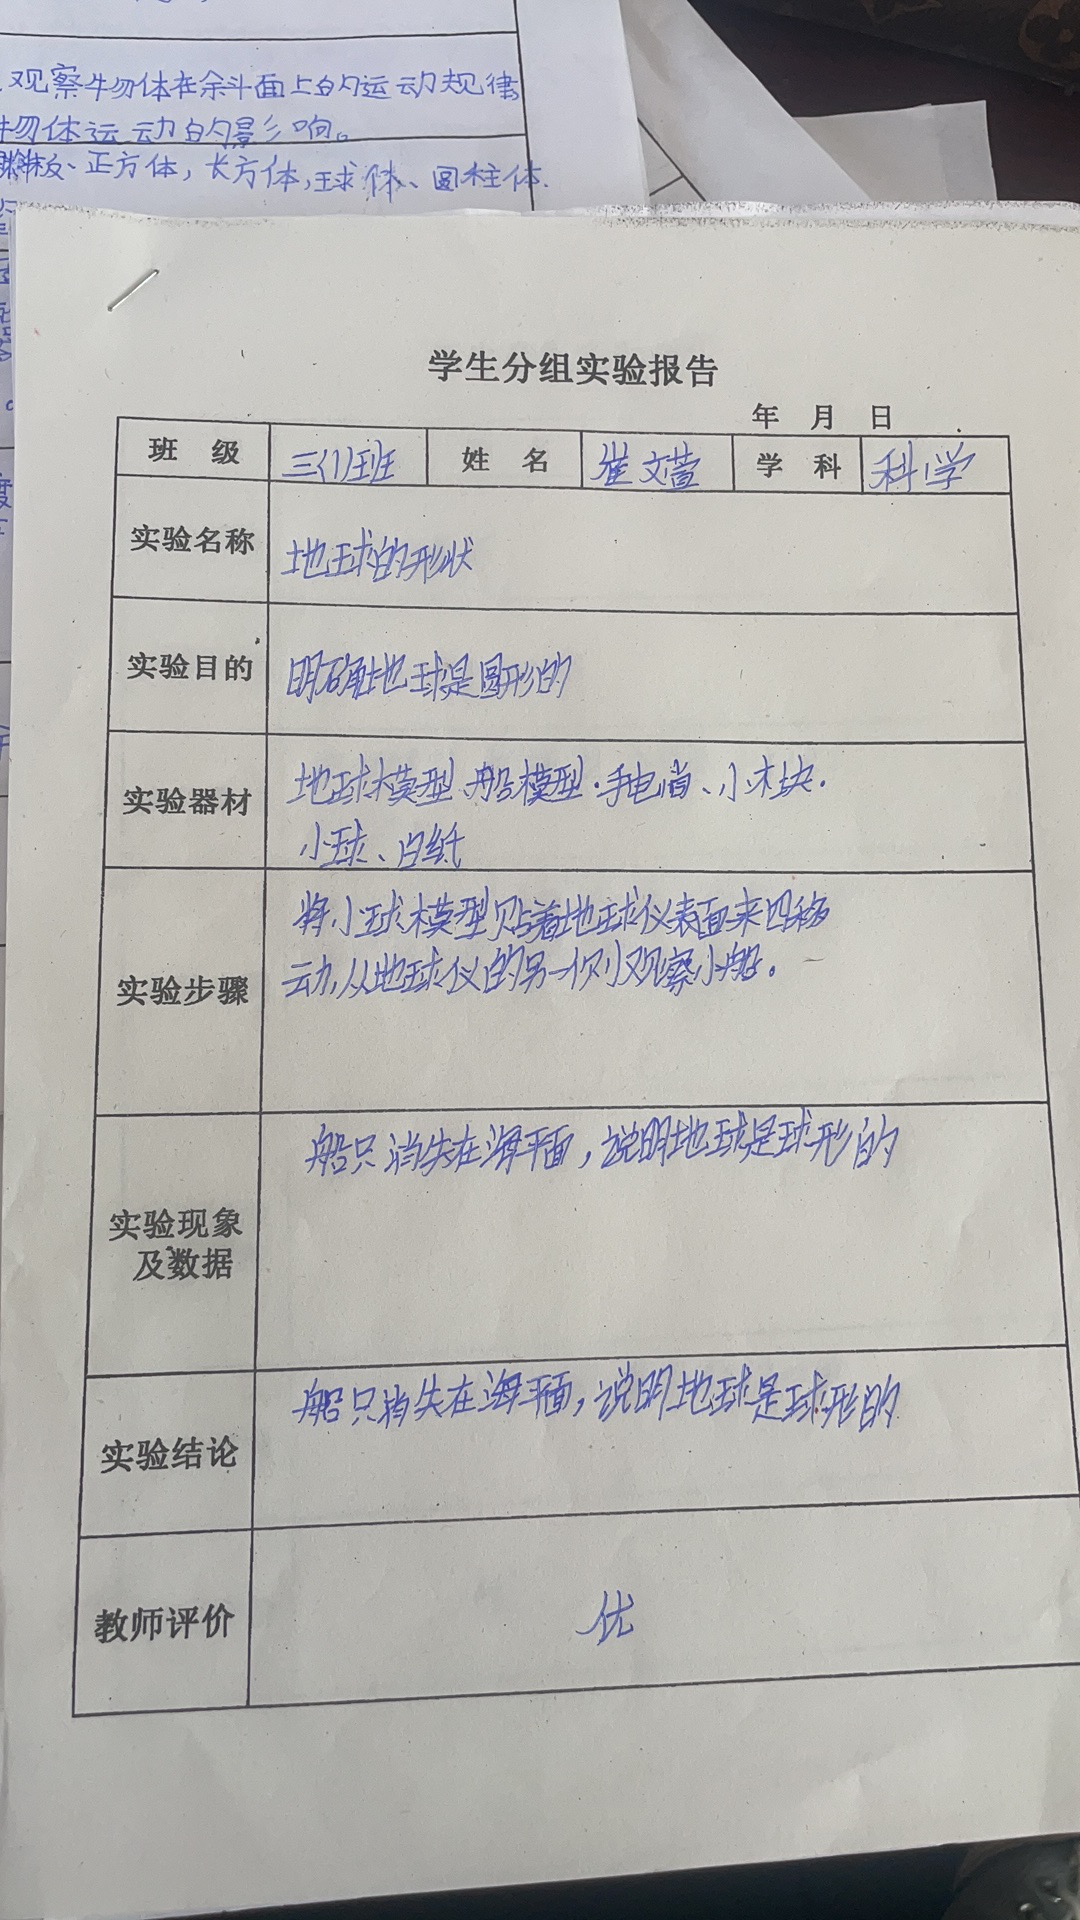 观察物体在斜面上的运动规律
物体运动的影响。
正方体，长方体，球体、圆柱体.
学生分组实验报告
年 月 日
班 级 三(1)班 姓 名 崔文萱 学 科 科学
实验名称 地球的形状
实验目的 明确地球是圆形的
实验器材 地球模型、船模型、手电筒、小木块.
小球、白纸
实验步骤 将小球模型贴着地球仪表面来回移
动,从地球仪的另一侧观察小船。
实验现象
及数据
船只消失在海平面，说明地球是球形的
实验结论 船只消失在海平面，说明地球是球形的
教师评价 优